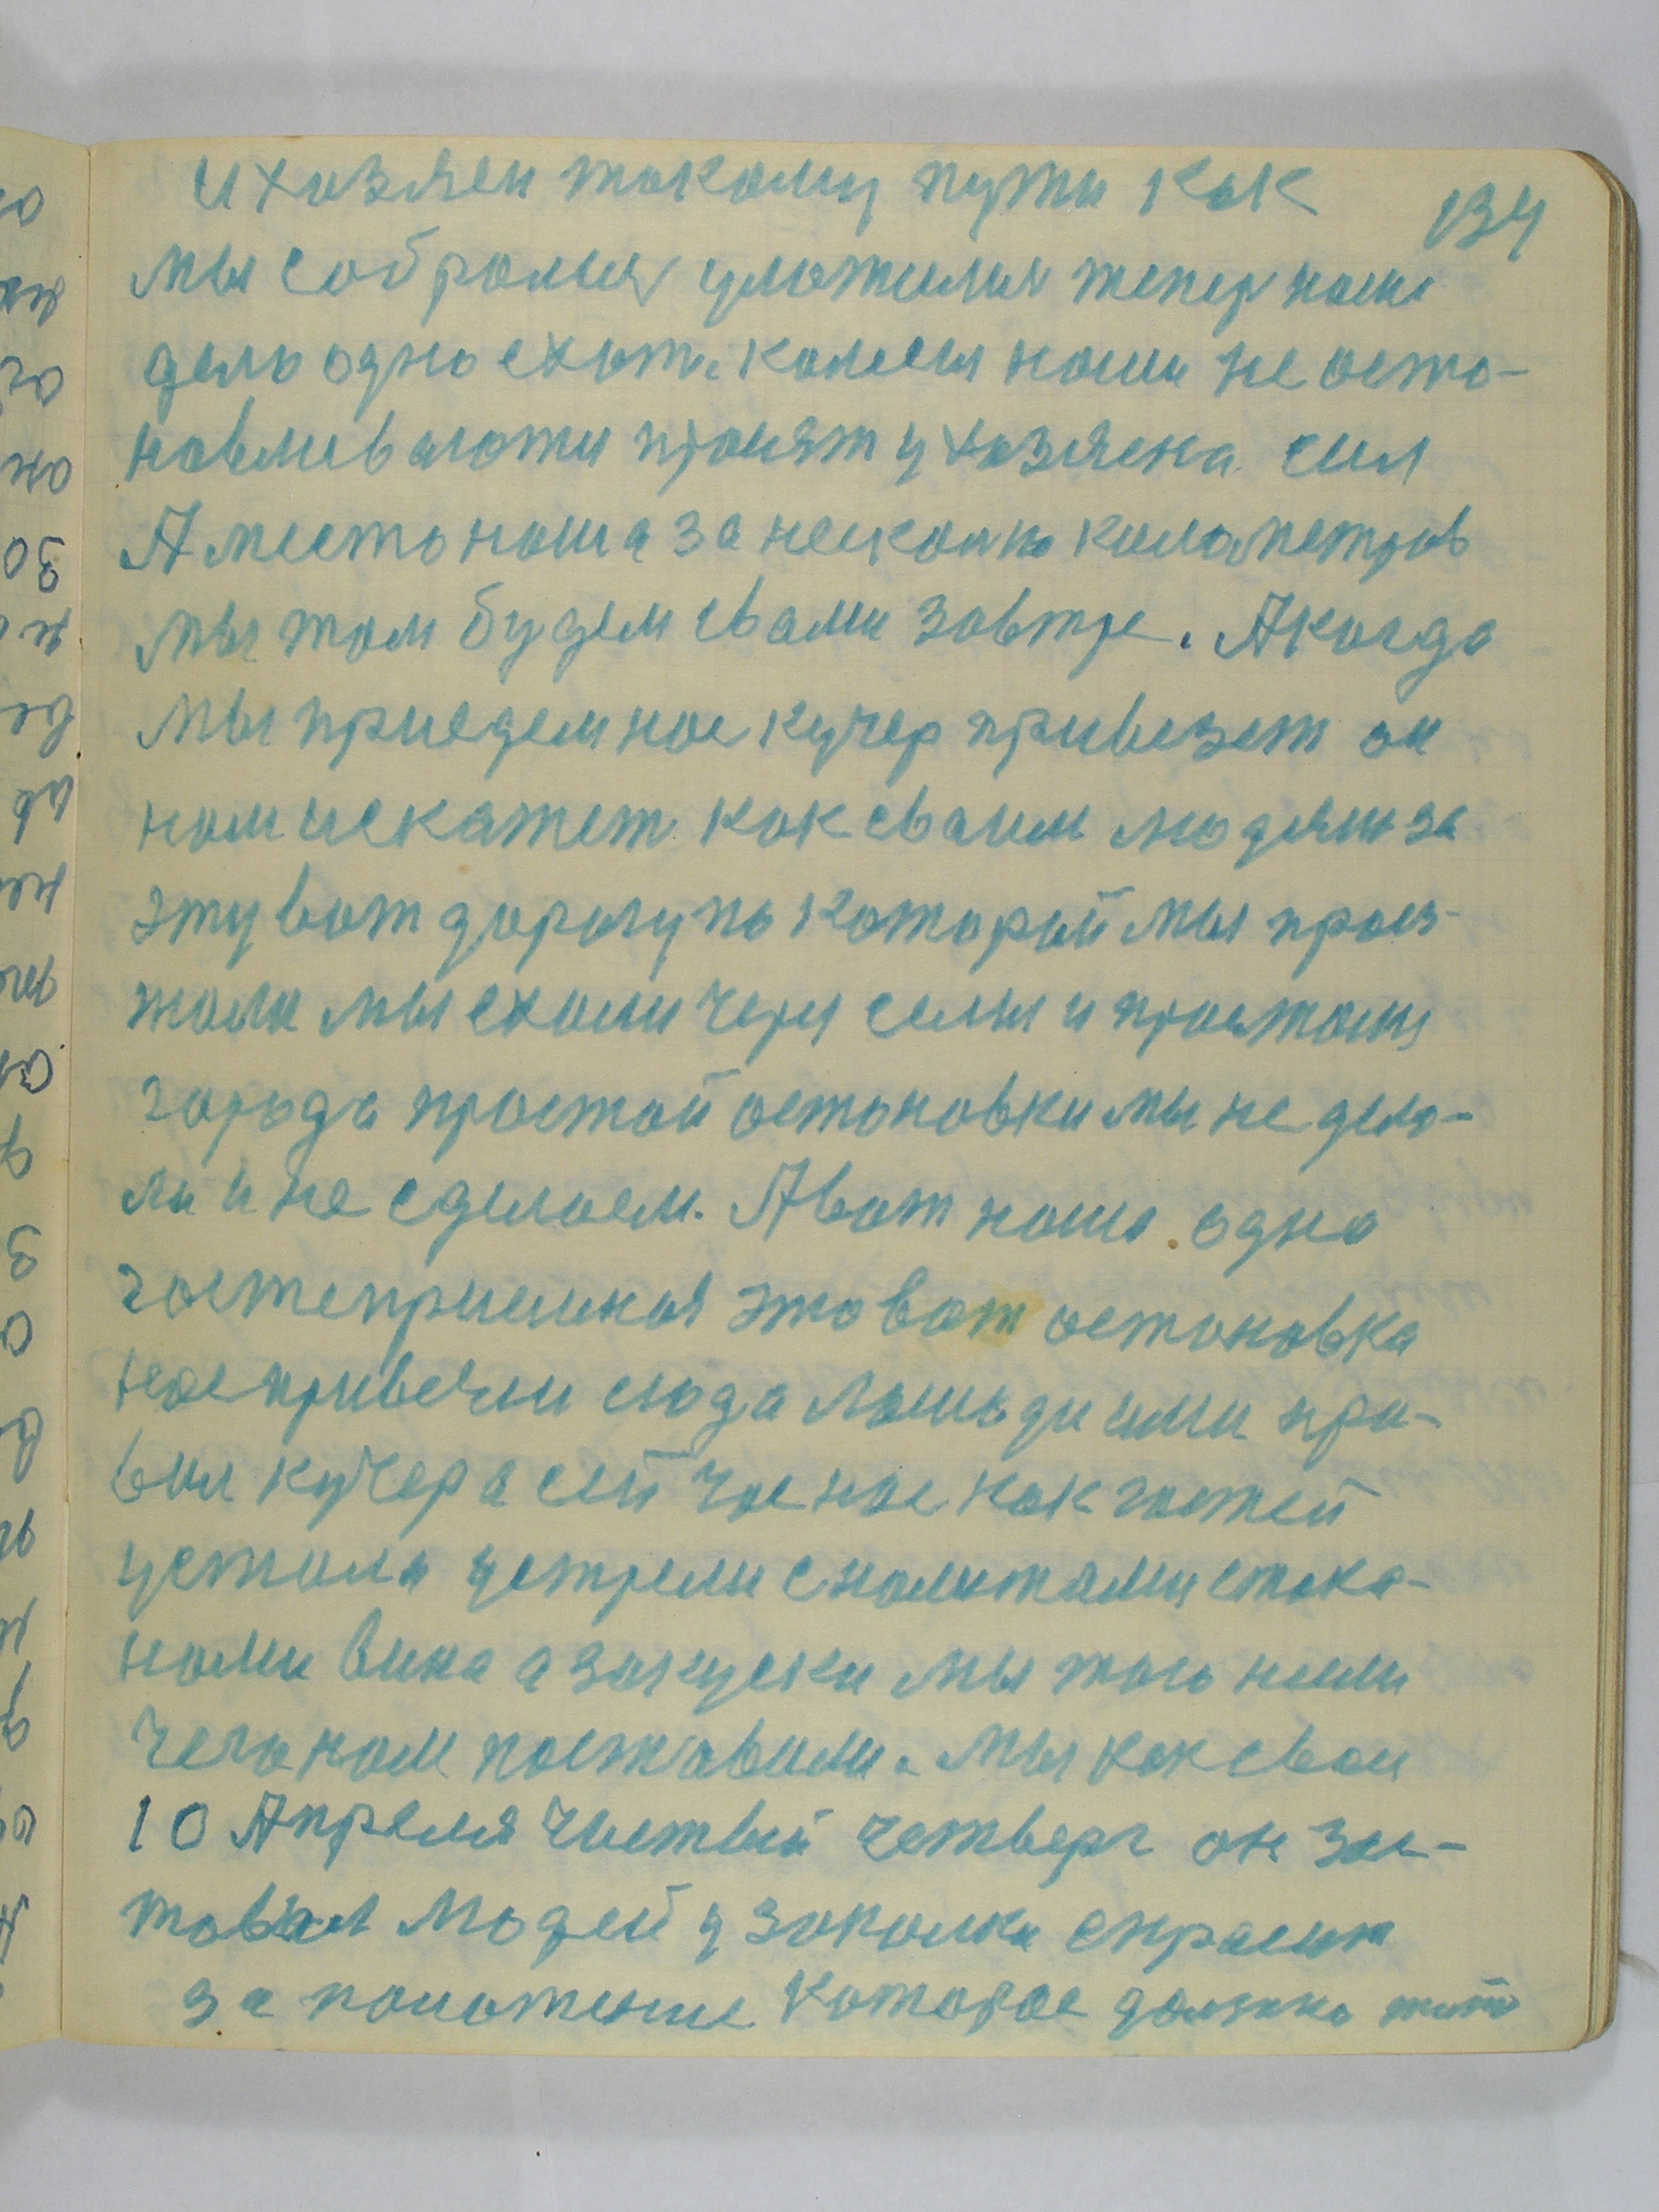 и хозяен такому пути как
134
мы собрались уложились тепер наше
дело одно ехат. колеса наши не оста-
навливаются просят у хозяена сил
А место наша за несколко километров
мы там будем свами завтре. А когда
мы приедем нас кучер привезет он
нам искажет как сваим людям за
эту вот дорогу по которой мы проез-
жали мы ехали через селы и простоиз
города простой остановки мы не дела-
ли и не сделаем. А вот наша одна
гостеприемная это вот остановка
нас привезли сюда лошади ими пра-
вил кучер а сейчас нас как гостей
устола устрели с налитами стака-
нами вина а закуски мы того ннли
чего нам поставили. мы как свои
10 Апреля чистый четверг он за-
товал людей у закалки спрасит
за положение которое должно жит